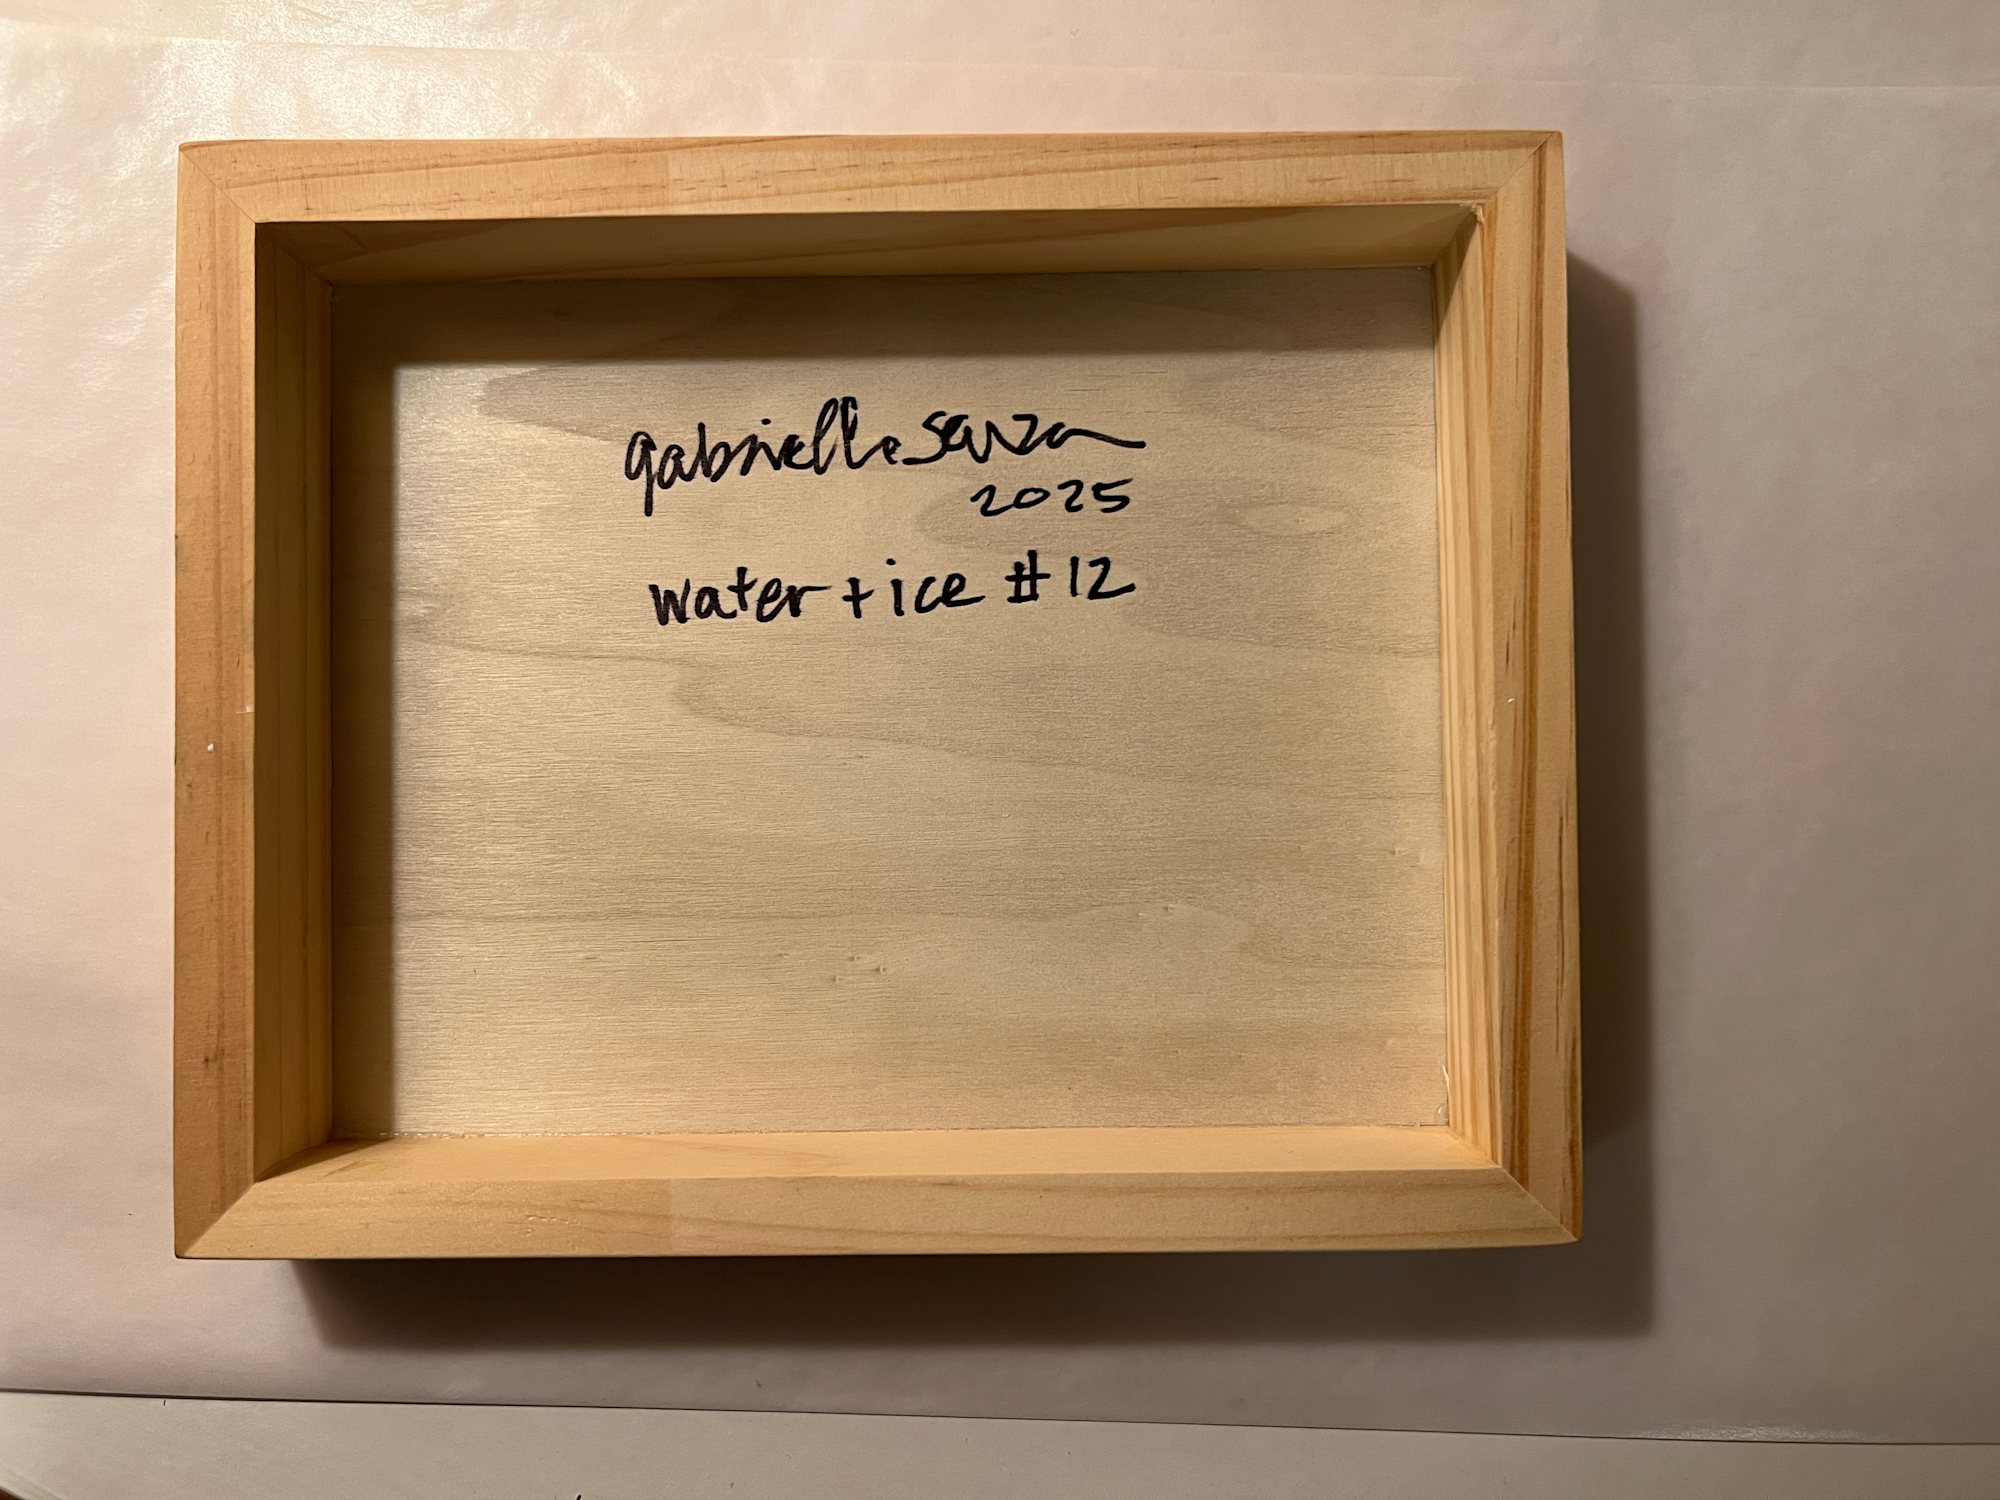 gabrielle
2025
water + ice #12